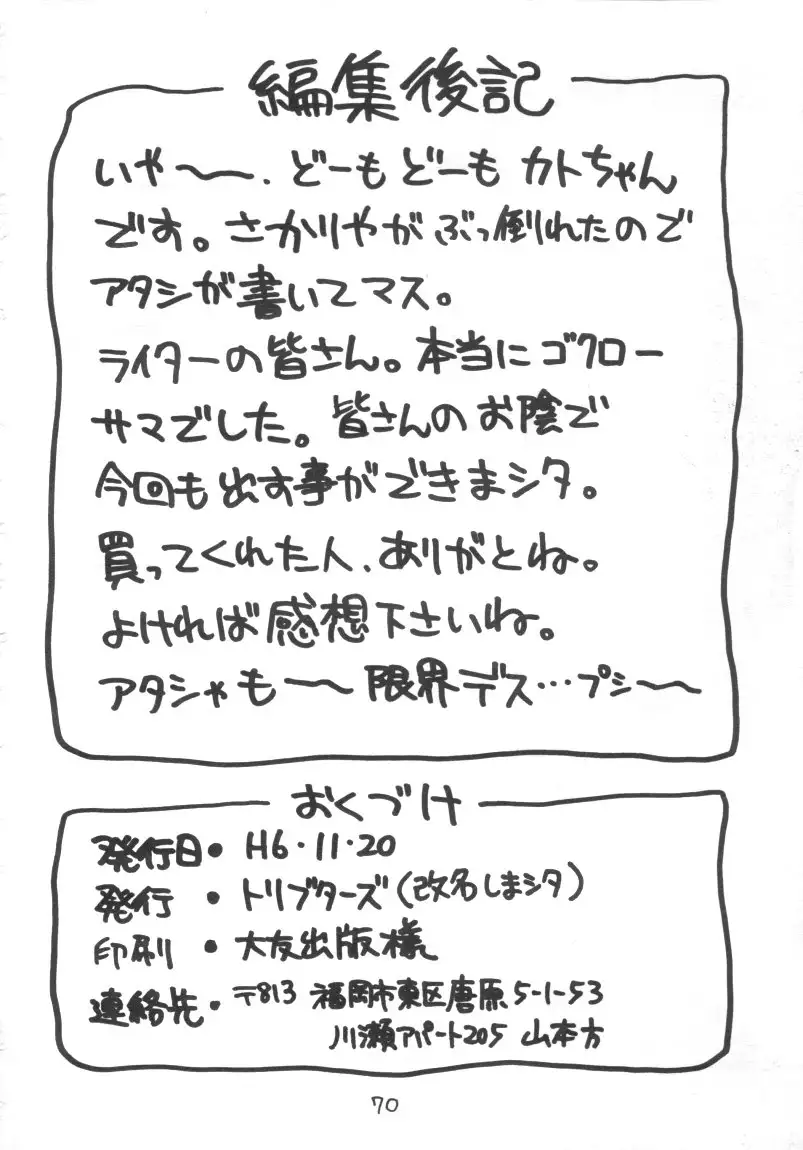 編集後記
いや〜。どーもどーも カトちゃん
です。さかりやがぶっ倒れたので
アタシが書いてマス。
ライターの皆さん。本当にゴクロー
サマでした。皆さんのお陰で
今回も出す事ができまシタ。
買ってくれた人、ありがとね。
よければ感想下さいね。
アタシャも〜限界デス…プシ〜
おくづけ
発行日・H6・11・20
発行・トリブターズ(改名しまシタ)
印刷・大友出版様
連絡先・〒813 福岡市東区唐原5-1-53
川瀬アパート205 山本方
70